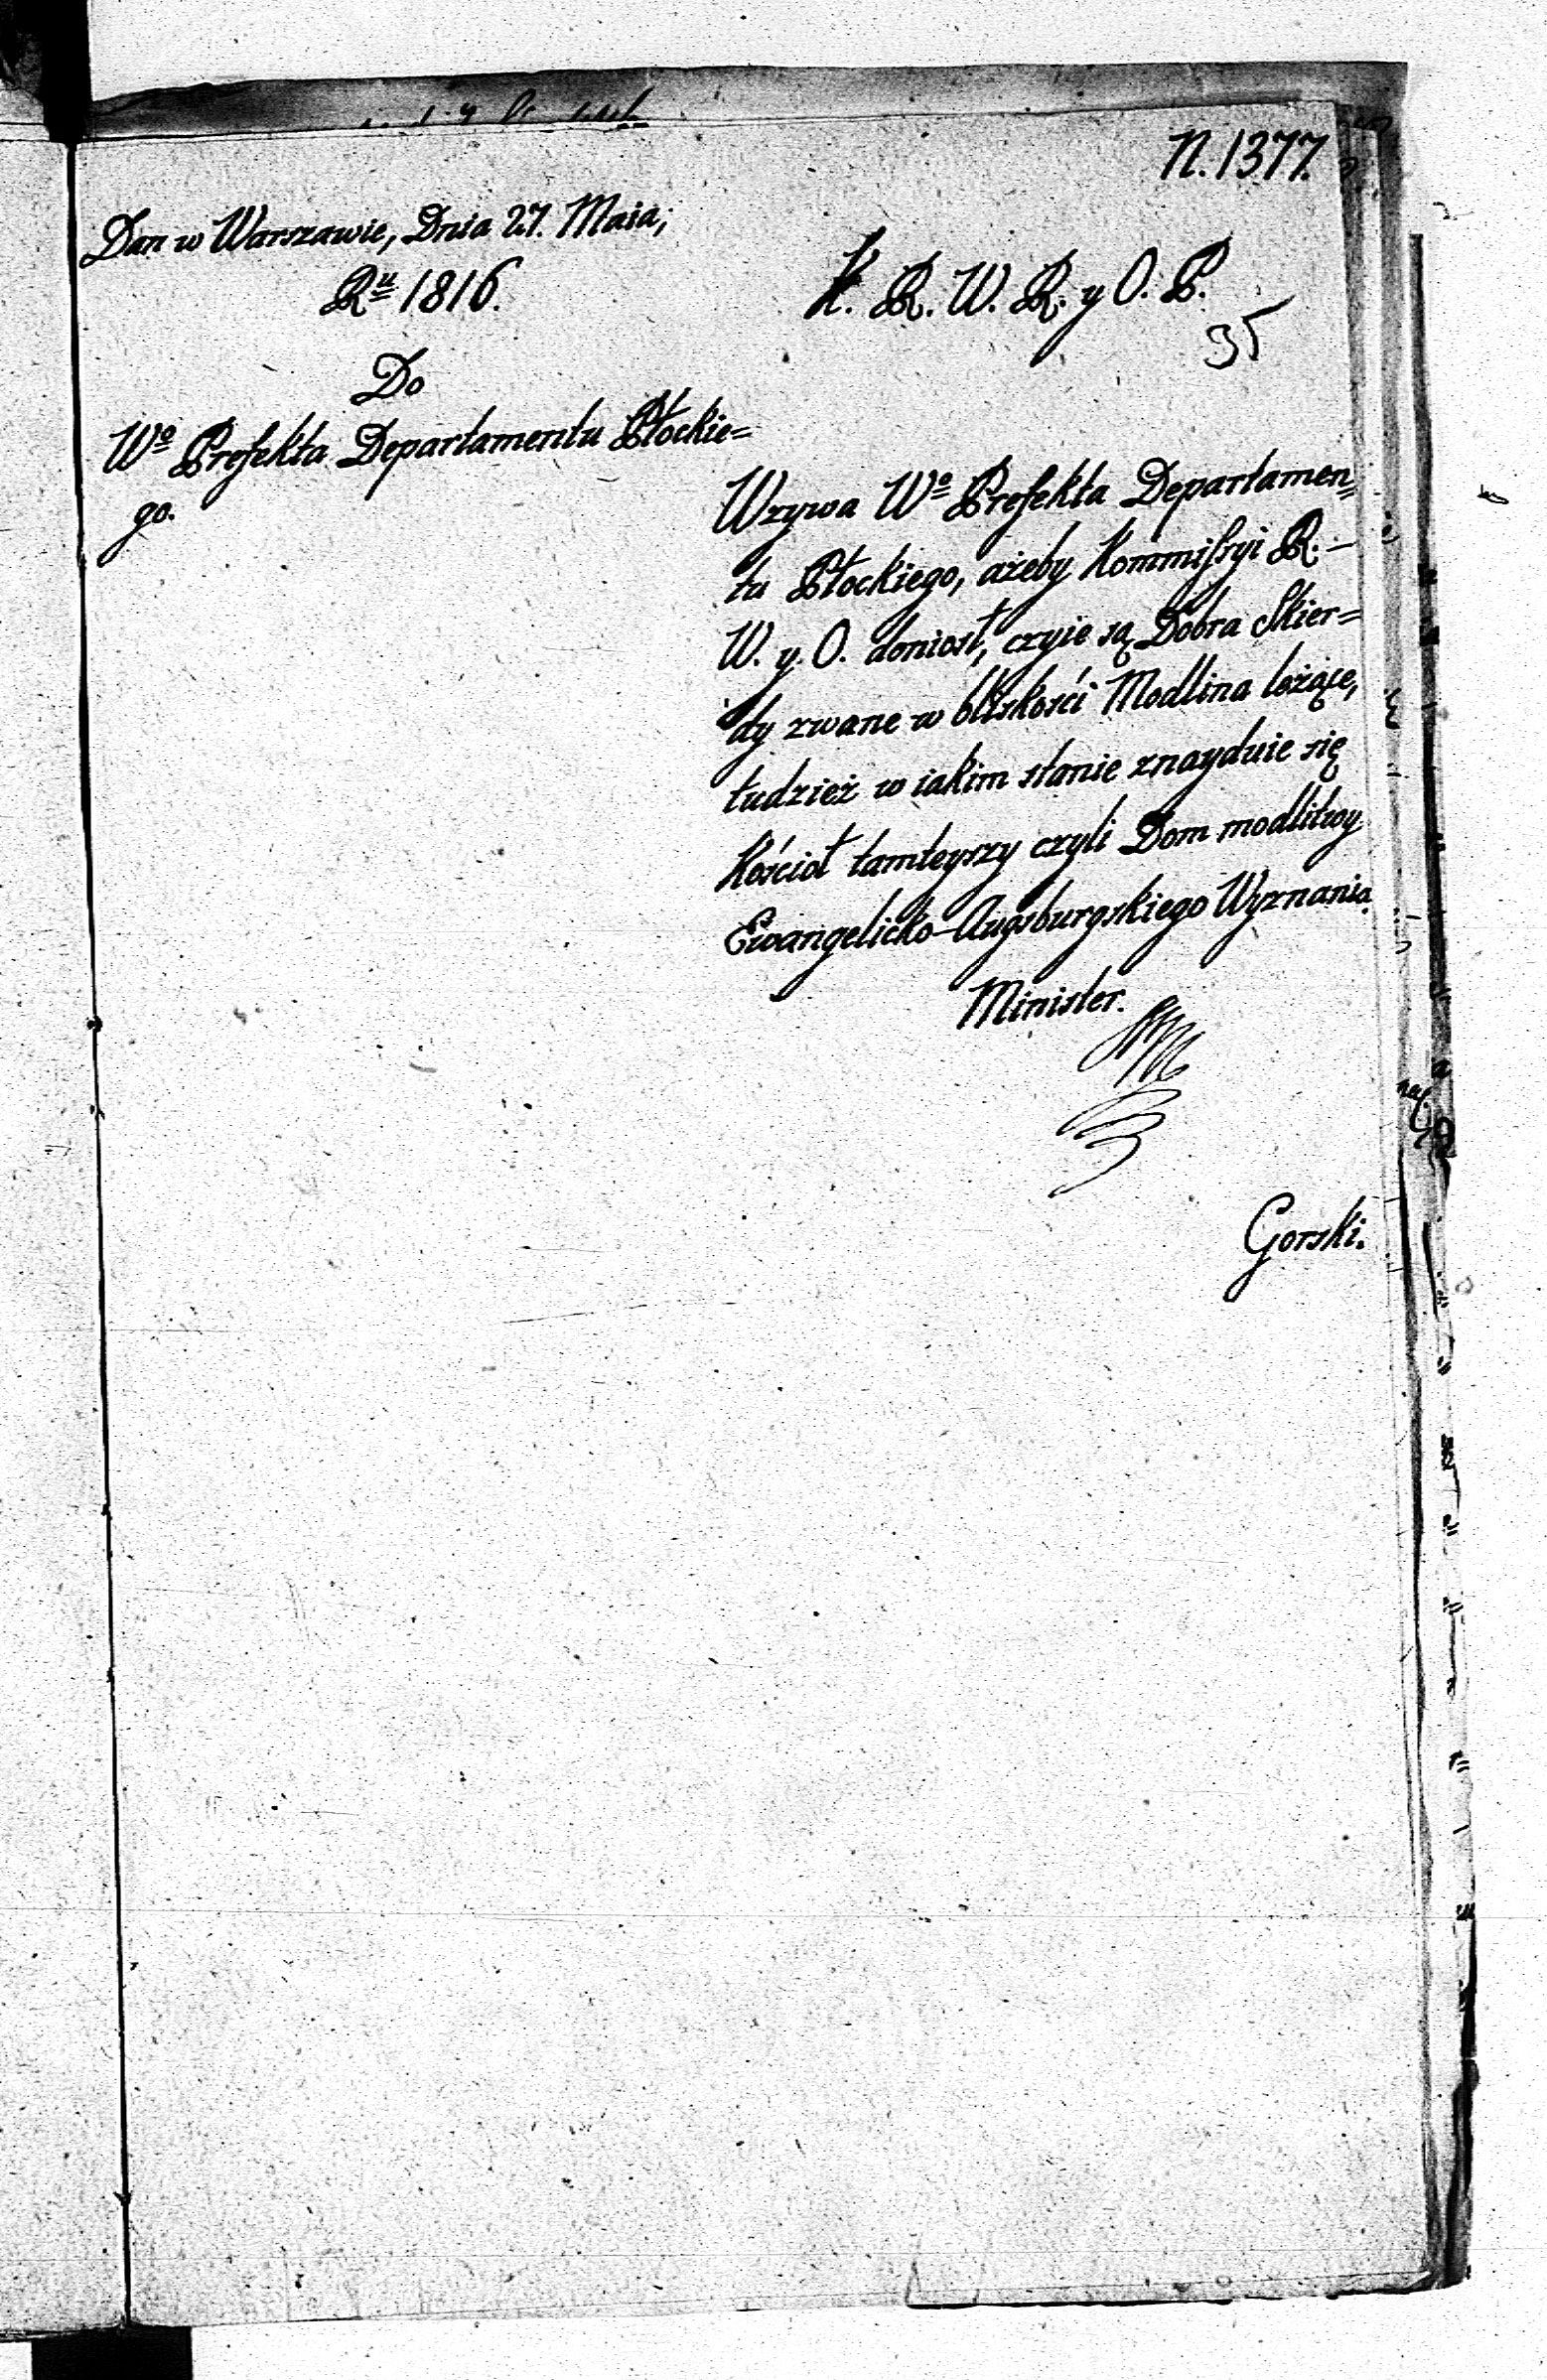 N. 1377.
Dan w Warszawie, Dnia 27. Maia,
Rᵘ 1816.
K. R. W. R. y O. P.
35
Do
Wº Prefekta Departamentu Płockie=
go.
Wzywa Wº Prefekta Departamen=
tu Płockiego, ażeby Kommiſsyi R. –
W. y. O. doniosł, czyie są Dobra Skier=
dy zwane w bliskości Modlina leżące,
tudzież w iakim stanie znayduie się
Kościoł tamteyszy czyli Dom modlitwy
Ewangelicko-Augsburgskiego Wyznania.
Minister.
Gorski.